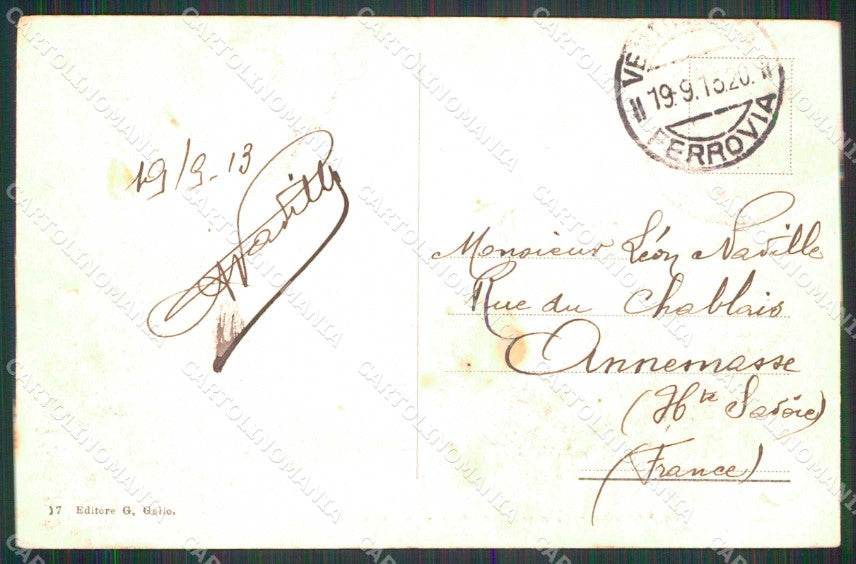 19/9-13
Naville
Monsieur Léon Naville
Rue du Chablais
Annemasse
(Hte Savoie)
(France)
19.9.13.20.
FERROVIA
17 Editore G. Gallo.
CARTOLINOMANIA